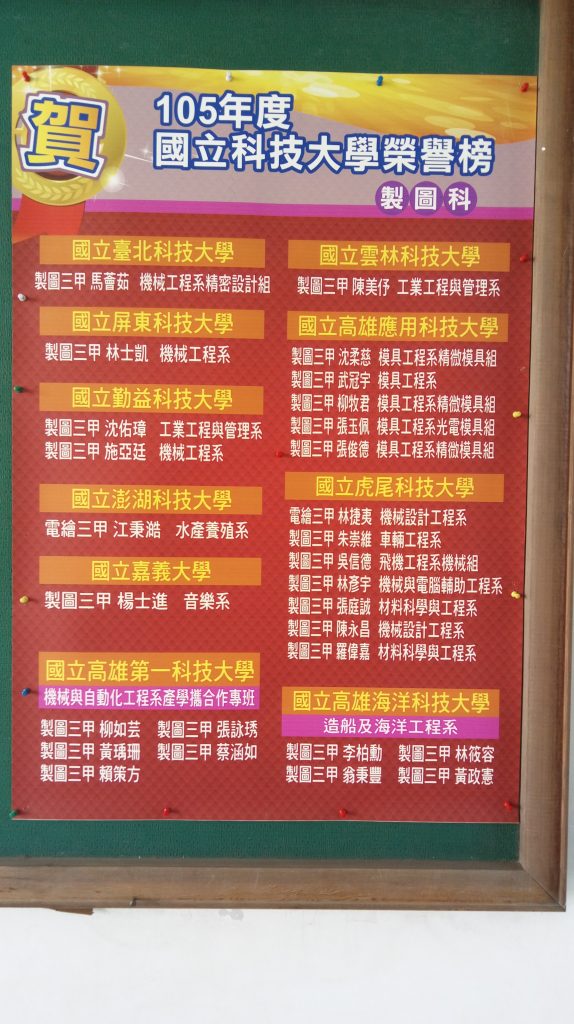 賀
105年度
國立科技大學榮譽榜
製圖科
國立臺北科技大學
製圖三甲 馬薈茹 機械工程系精密設計組
國立屏東科技大學
製圖三甲 林士凱 機械工程系
國立勤益科技大學
製圖三甲 沈佑璋 工業工程與管理系
製圖三甲 施亞廷 機械工程系
國立澎湖科技大學
電繪三甲 江秉澔 水產養殖系
國立嘉義大學
製圖三甲 楊士進 音樂系
國立高雄第一科技大學
機械與自動化工程系產學攜合作專班
製圖三甲 柳如芸 製圖三甲 張詠琇
製圖三甲 黃瑀珊 製圖三甲 蔡涵如
製圖三甲 賴策方
國立雲林科技大學
製圖三甲 陳美伃 工業工程與管理系
國立高雄應用科技大學
製圖三甲 沈柔慈 模具工程系精微模具組
製圖三甲 武冠宇 模具工程系
製圖三甲 柳牧君 模具工程系精微模具組
製圖三甲 張玉佩 模具工程系光電模具組
製圖三甲 張俊德 模具工程系精微模具組
國立虎尾科技大學
電繪三甲 林捷夷 機械設計工程系
製圖三甲 朱崇維 車輛工程系
製圖三甲 吳信德 飛機工程系機械組
製圖三甲 林彥宇 機械與電腦輔助工程系
製圖三甲 張庭誠 材料科學與工程系
製圖三甲 陳永昌 機械設計工程系
製圖三甲 羅偉嘉 材料科學與工程系
國立高雄海洋科技大學
造船及海洋工程系
製圖三甲 李柏勳 製圖三甲 林筱容
製圖三甲 翁秉豐 製圖三甲 黃政憲